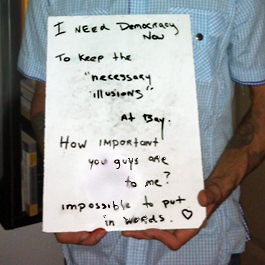 I NEED Democracy
Now
To keep the
"necessary
illusions"
At Bay.
How important
you guys are
to me?
impossible to put
in words. ♡